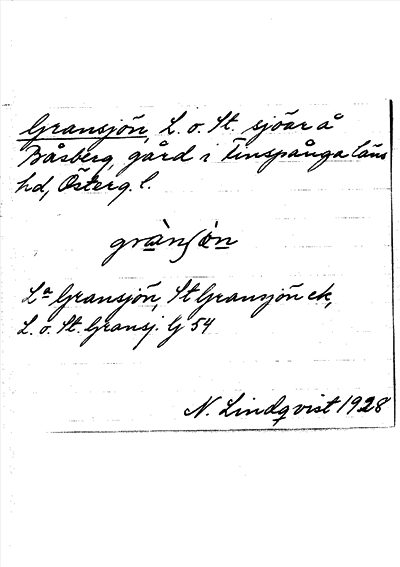 Gransjön, L. o. St. sjöar å
Båsberg, gård i Finspånga läns
hd, Österg. l.
grànsὼn
La Gransjön, St Gransjön ek,
L. o. St. Gransj. G 54
N. Lindqvist 1928